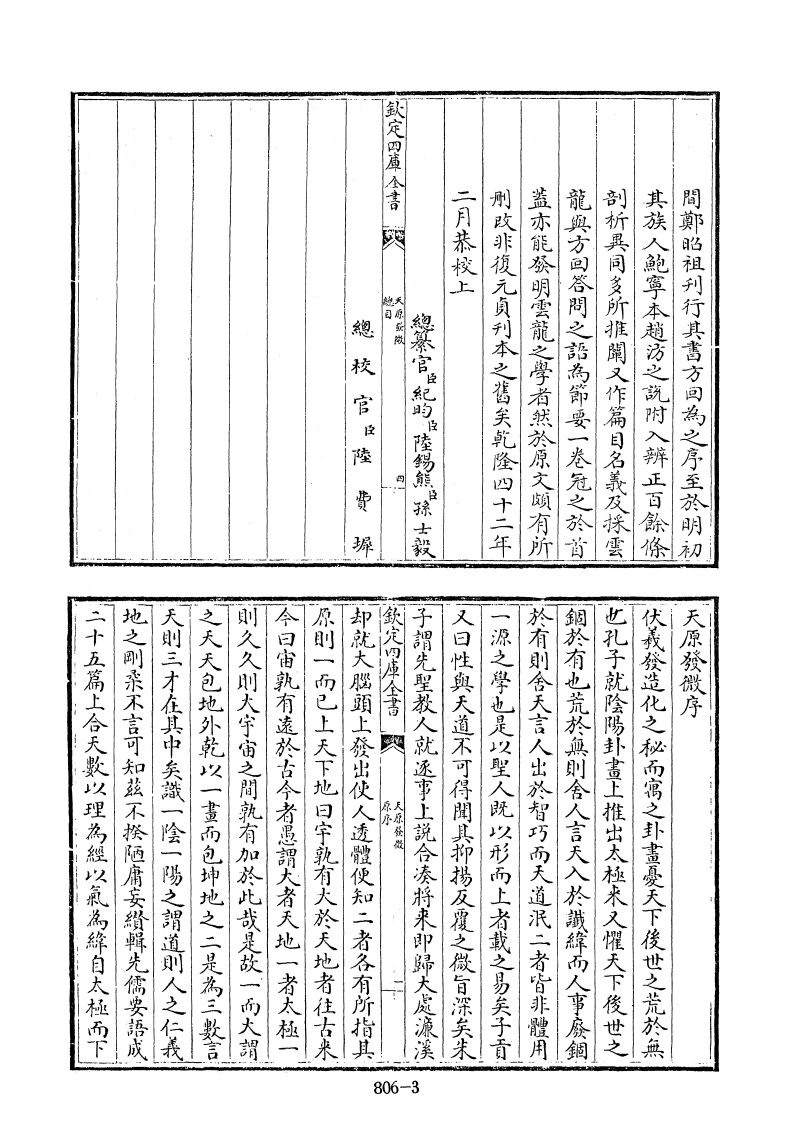 間鄭昭祖刊行其書方回為之序至於明初
其族人鮑寧本趙汸之説附入辨正百餘條
剖析異同多所推闡又作篇目名義及採雲
龍與方回答問之語為節要一卷冠之於首
蓋亦能發明雲龍之學者然於原文頗有所
刪改非復元貞刊本之舊矣乾隆四十二年
二月恭校上
總纂官臣紀昀臣陸錫熊臣孫士毅
欽定四庫全書
天原發微
總目
四
總校官臣陸費墀
天原發微序
伏羲發造化之秘而寓之卦畫憂天下後世之荒於無
也孔子就陰陽卦畫上推出太極来又懼天下後世之
錮於有也荒於無則舍人言天入於讖緯而人事廢錮
於有則舍天言人出於智巧而天道泯二者皆非體用
一源之學也是以聖人既以形而上者載之易矣子貢
又曰性與天道不可得聞其抑揚反覆之微旨深矣朱
子謂先聖教人就逐事上説合湊將来即歸大處濂溪
欽定四庫全書
天原發微
原序
一
却就大腦頭上發出使人透體便知二者各有所指其
原則一而已上天下地曰宇孰有大於天地者往古来
今曰宙孰有遠於古今者愚謂大者天地一者太極一
則久久則大宇宙之間孰有加於此哉是故一而大謂
之天天包地外乾以一畫而包坤地之二是為三數言
天則三才在其中矣識一陰一陽之謂道則人之仁義
地之剛柔不言可知茲不揆陋庸妄纘輯先儒要語成
二十五篇上合天數以理為經以氣為緯自太極而下
806-3